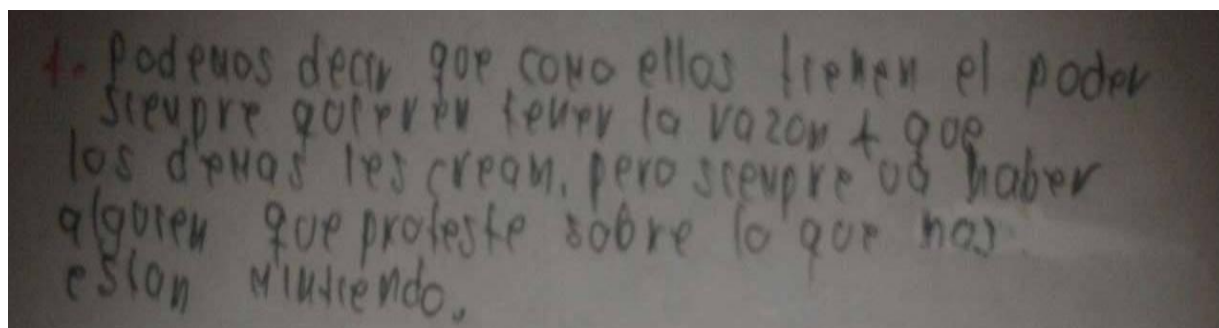 1. Podemos decir que como ellos tienen el poder
siempre quieren tener la razon + que
los demas les crean. pero siempre va haber
alguien que proteste sobre lo que nos
estan mintiendo.